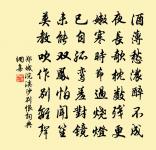 酒薄愁濃醉不成
夜長欹枕數殘更
嫩寒時節過燒燈
已自孤鸞羞對鏡
未能雙鳳怕聞笙
莫教吹作別離聲
鄭域浣溪沙別恨詞典
網